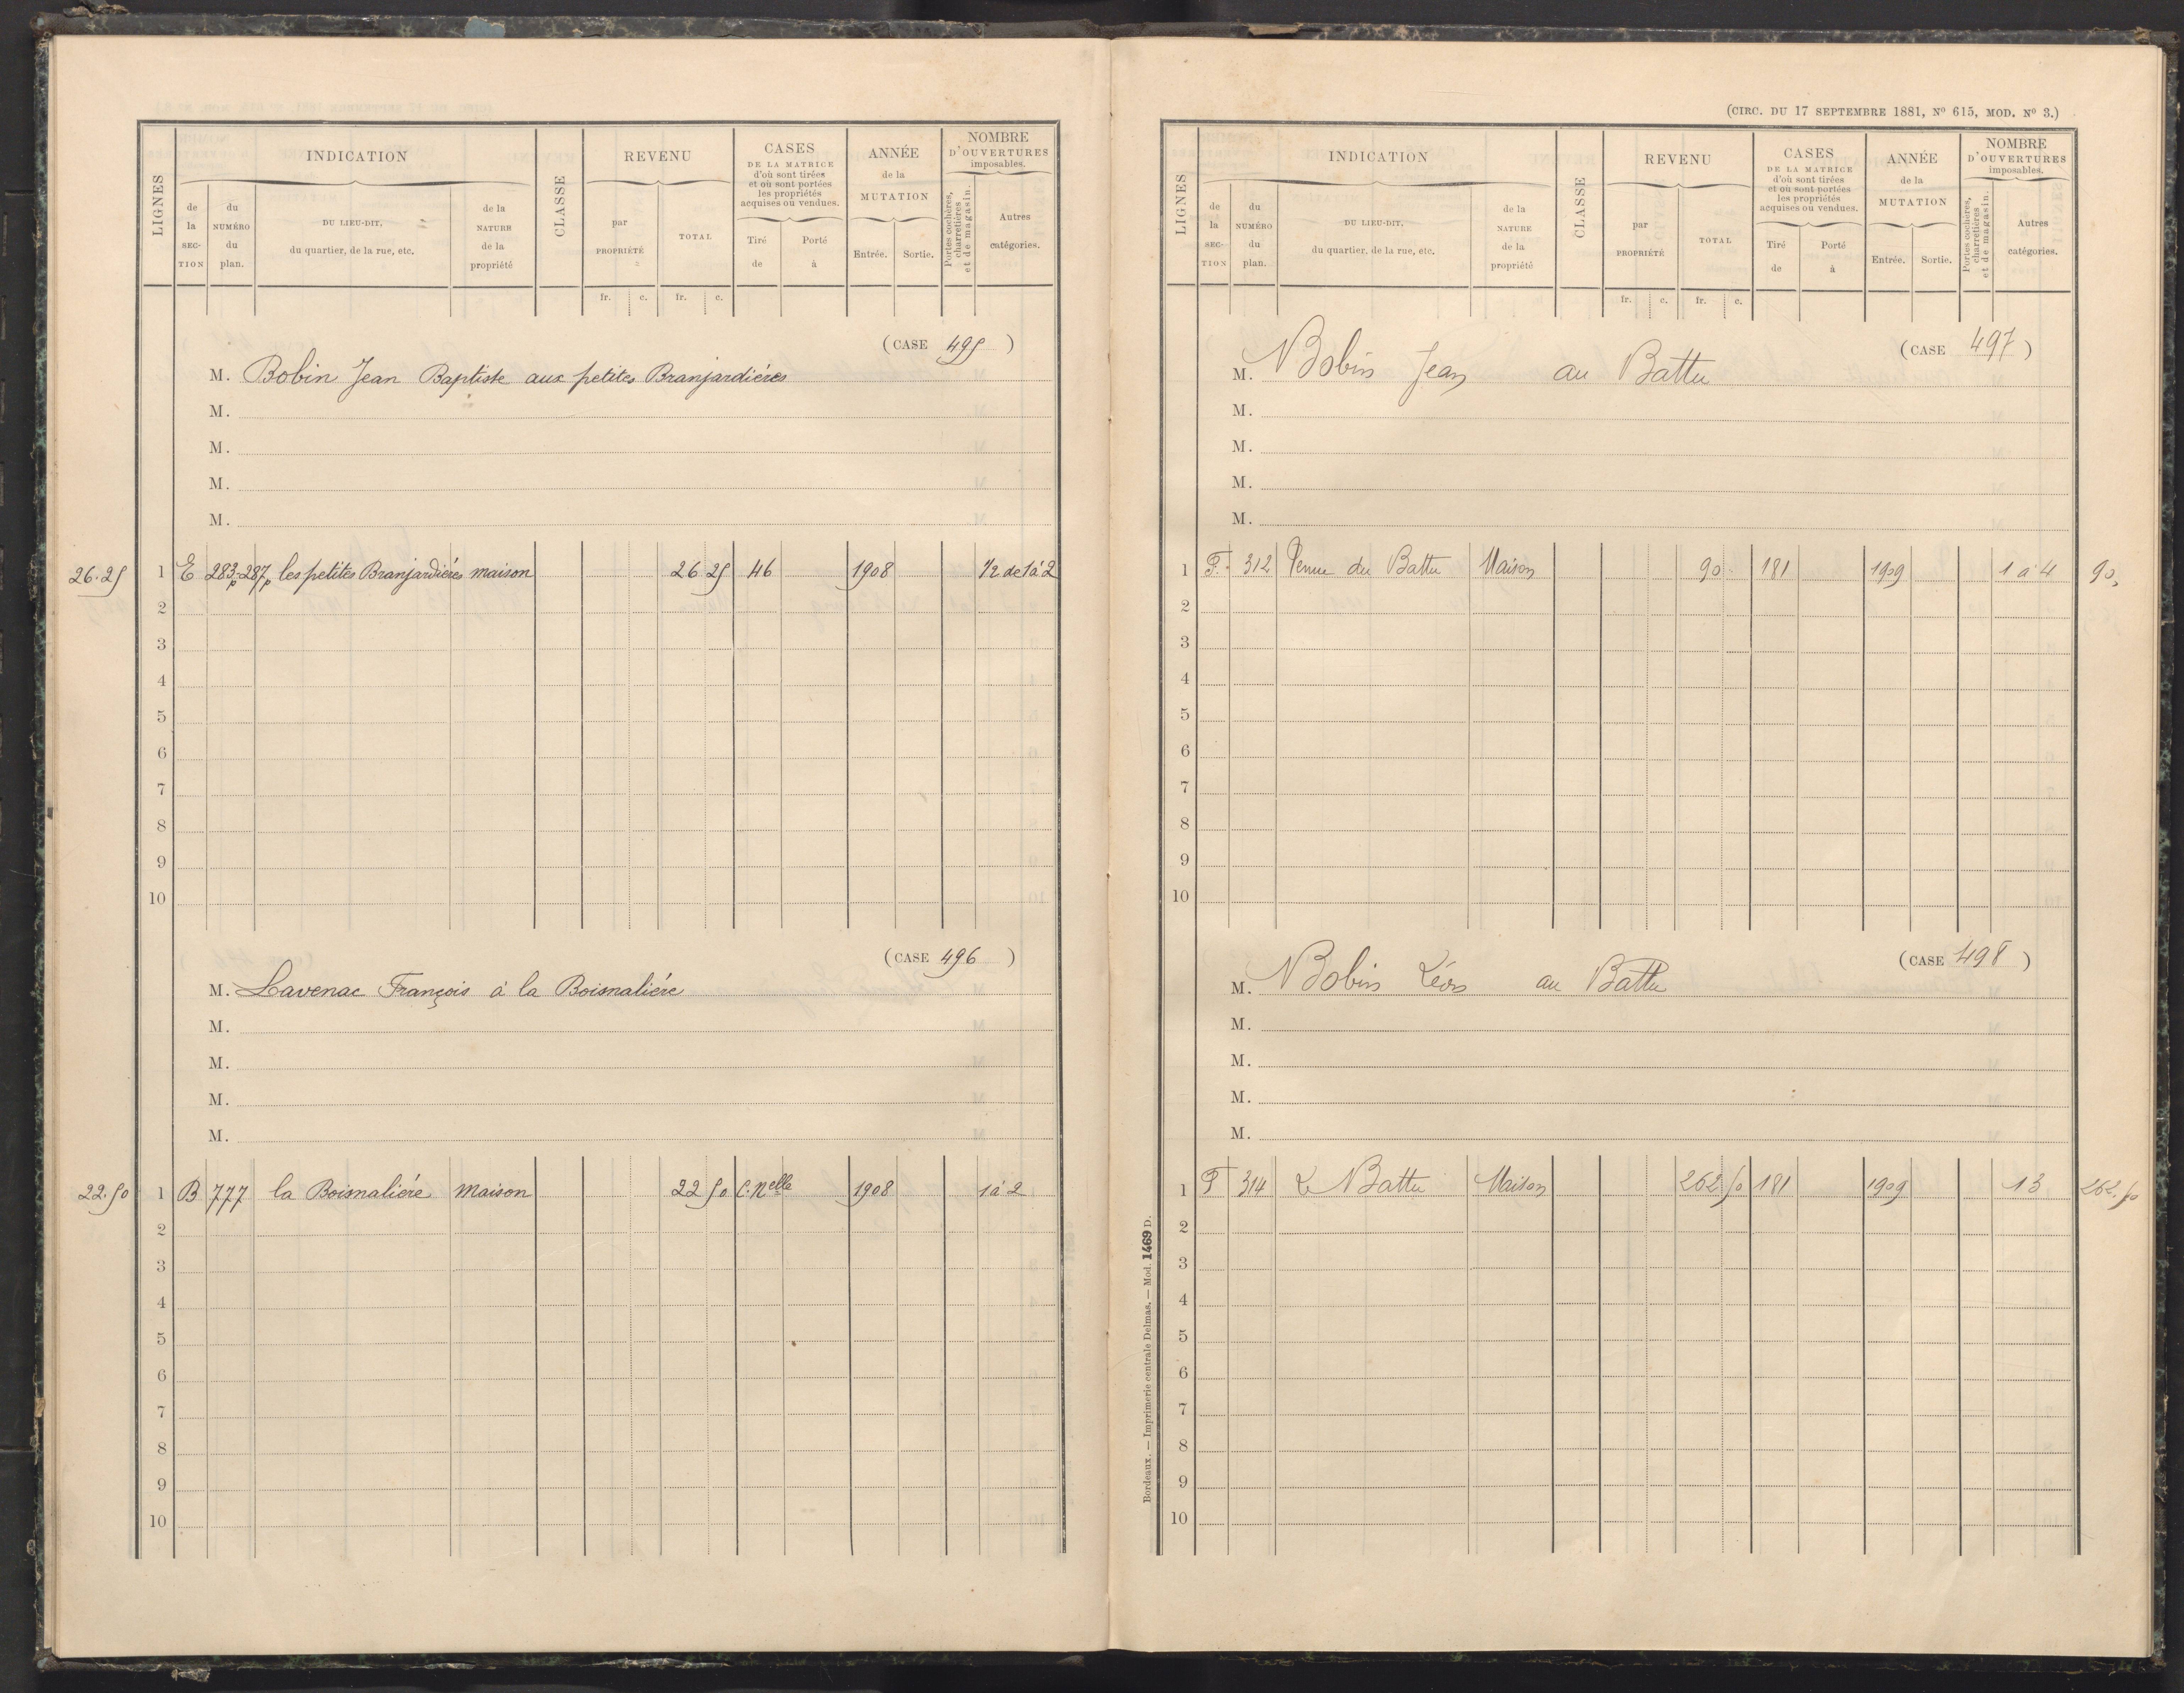 INDICATION
REVENU
CASES
DE LA MATRICE
d'où sont tirées
et où sont portées
les propriétés
acquises ou vendues.
ANNÉE
de la
MUTATION
NOMBRE
D'OUVERTURES
imposables.
LIGNES
de
la
SEC-
TION
du
NUMÉRO
du
plan.
DU LIEU-DIT,
du quartier, de la rue, etc.
de la
NATURE
de la
propriété
CLASSE
par
PROPRIÉTÉ
TOTAL
Tiré
de
Porté
à
Entrée.
Sortie.
Portes cochères,
charretières
et de magasin.
Autres
catégories.
fr. c. fr. c.
(CASE 495 )
M. Bobin Jean Baptiste aux petites Branjardières
M.
M.
M.
M.
26.25 1 E 283p-287p les petites Branjardières maison 26 25 46 1908 1/2 de 1 à 2
2
3
4
5
6
7
8
9
10
(CASE 496 )
M. Lavenac François à la Boismalière
M.
M.
M.
M.
22.50 1 B 777 la Boismalière maison 22 50 C. Nelle 1908 1 à 2
2
3
4
5
6
7
8
9
10
(CIRC. DU 17 SEPTEMBRE 1881, Nº 615, MOD. Nº 3.)
INDICATION
REVENU
CASES
DE LA MATRICE
d'où sont tirées
et où sont portées
les propriétés
acquises ou vendues.
ANNÉE
de la
MUTATION
NOMBRE
D'OUVERTURES
imposables.
LIGNES
de
la
SEC-
TION
du
NUMÉRO
du
plan.
DU LIEU-DIT,
du quartier, de la rue, etc.
de la
NATURE
de la
propriété
CLASSE
par
PROPRIÉTÉ
TOTAL
Tiré
de
Porté
à
Entrée.
Sortie.
Portes cochères,
charretières
et de magasin.
Autres
catégories.
fr. c. fr. c.
(CASE 497 )
M. Bobin Jean au Battu
M.
M.
M.
M.
1 F. 312 du Battu Maison 90 181 1909 1 à 4 90,
2
3
4
5
6
7
8
9
10
(CASE 498 )
M. Bobin Léon au Battu
M.
M.
M.
M.
1 F 314 Le Battu Maison 262 50 181 1909 13 262.50
2
3
4
5
6
7
8
9
10
Bordeaux. — Imprimerie centrale Delmas. — Mod. 1469 D.